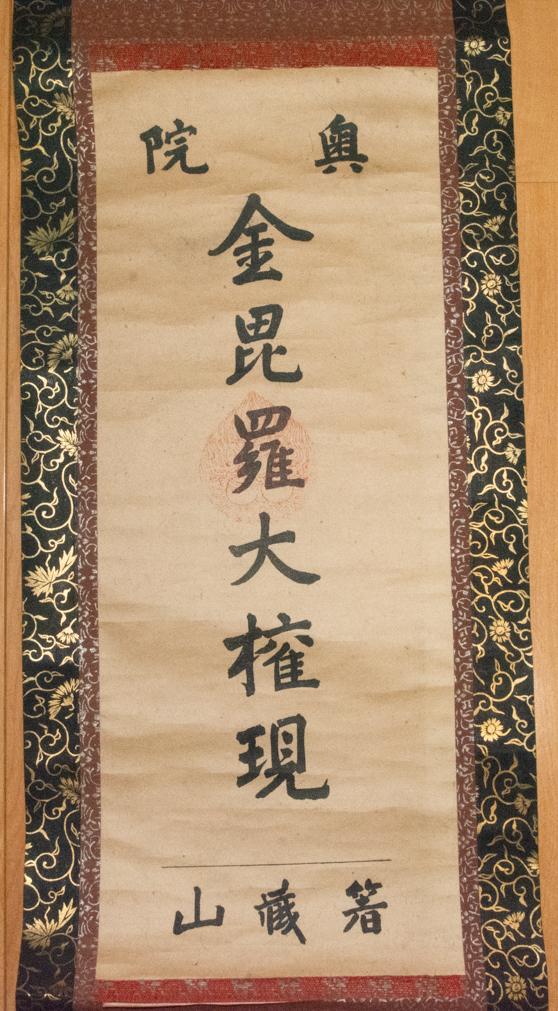 奥院
金毘羅大権現
箸蔵山